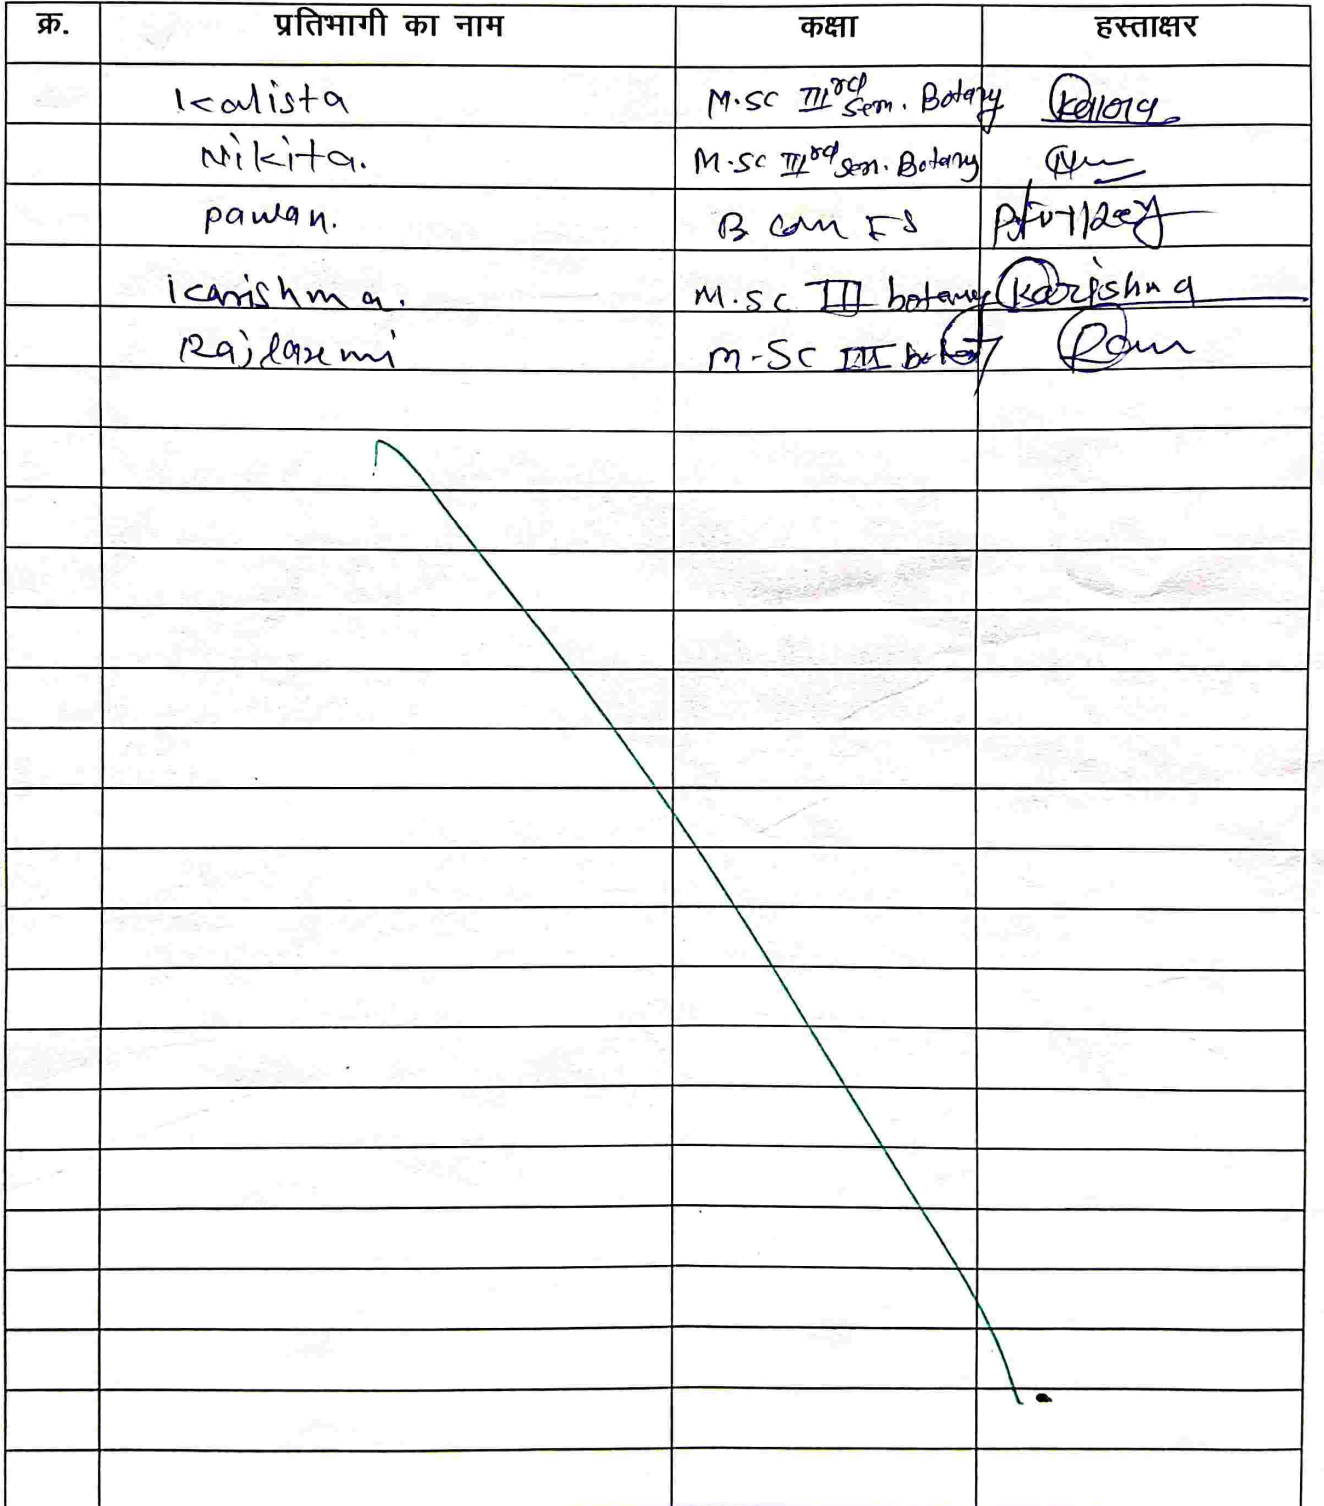 क्र. प्रतिभागी का नाम कक्षा हस्ताक्षर
Kalista M.SC IIIrd Sem. Botany
Nikita. M.SC IIIrd Sem. Botany
pawan. B com
Karishma. M.SC III botany Karishma
Rajlaxmi M-SC III